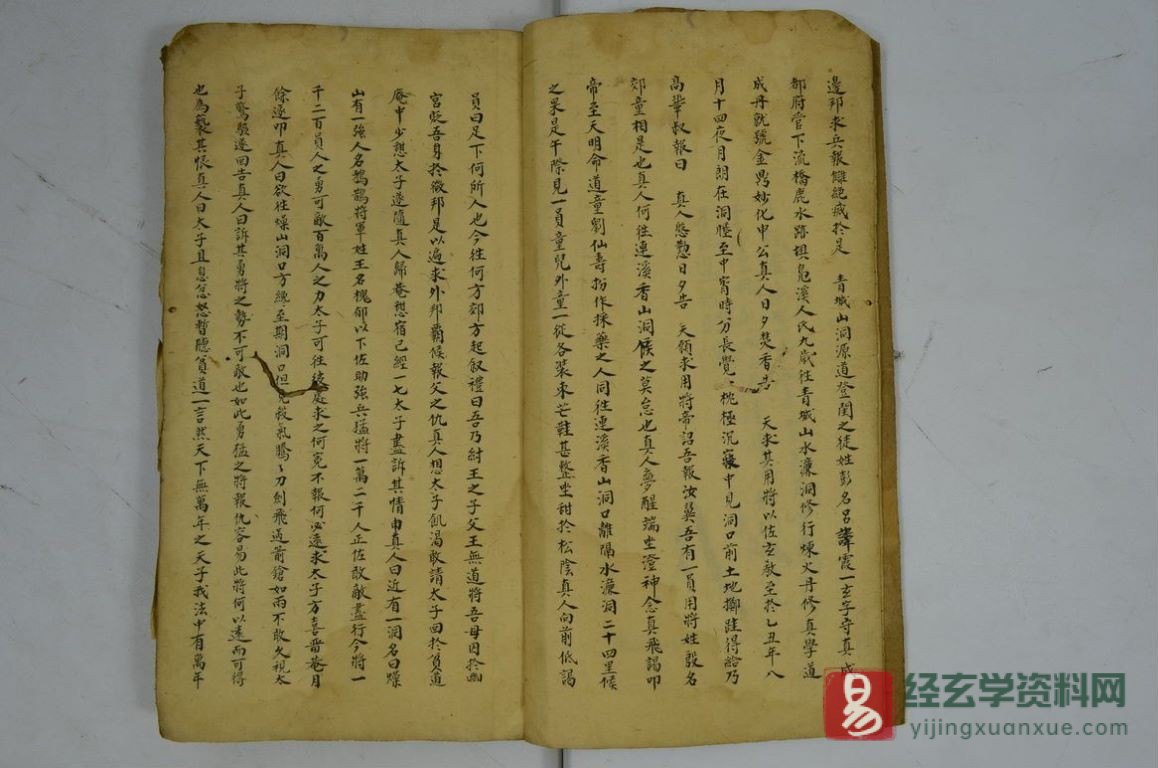 邊邦求兵報讎絕滅於是　青城山洞源道登閏之徒姓彭名呂諱霞一玄字守真成
都府管下流橋鹿水路摂龜溪人民九歲往青城山水濂洞修行煉火丹修真學道
成丹就號金鼎妙化申公真人日夕焚香告　天求其用將以佐玄教至於乙丑年八
月十四夜月朗在洞睡至中宵時分長覺〻枕極沉寐中見洞口前土地擲跬得給乃
高聲叔報曰　真人慇懃日夕告　天領求用將帝詔吾報汝冀吾有一員用將姓殷名
郊童相是也真人何往連溪香山洞候之莫怠也真人夢醒端坐澄神念真飛謁叩
帝至天明命道童劉仙壽扮作採藥之人同往連溪香山洞口離隔水濂洞二十四里候
之果是午際見一員童兒外童一從各裝束芒鞋甚整坐甜於松陰真人向前低謁
員曰足下何所人也今往何方郊方起叙禮曰吾乃紂王之子父王無道將吾母因於幽
宮貶吾身於微邦是以遍求外邦覇候報父之仇真人想太子飢渴敢請太子回於貧道
庵中少想太子遂隨真人歸菴想宿已經一七太子盡訴其情由真人曰近有一洞名曰燥
山有一強人名鵝鷂將軍姓王名槐郁以下佐助強兵猛將一萬二千人正佐敌敵盡行今將一
千二百員人之勇可敵百萬人之力太子可往 處求之何寃不報何必遠求太子方喜畱菴月
餘遂叩真人曰欲往燥山洞口方繞至期洞口但見殺氣騰〻刀劍飛過前鎗如雨不敢久視太
子驚駭遂回告真人曰訴其勇將之勢不可敢也如此勇猛之將報仇容易此將何以遠而可得
也為藝其恨真人曰太子且息忿怒暫聽貧道一言然天下無萬年之天子我法中有萬年
易
经玄学资料网
yijingxuanxue.com